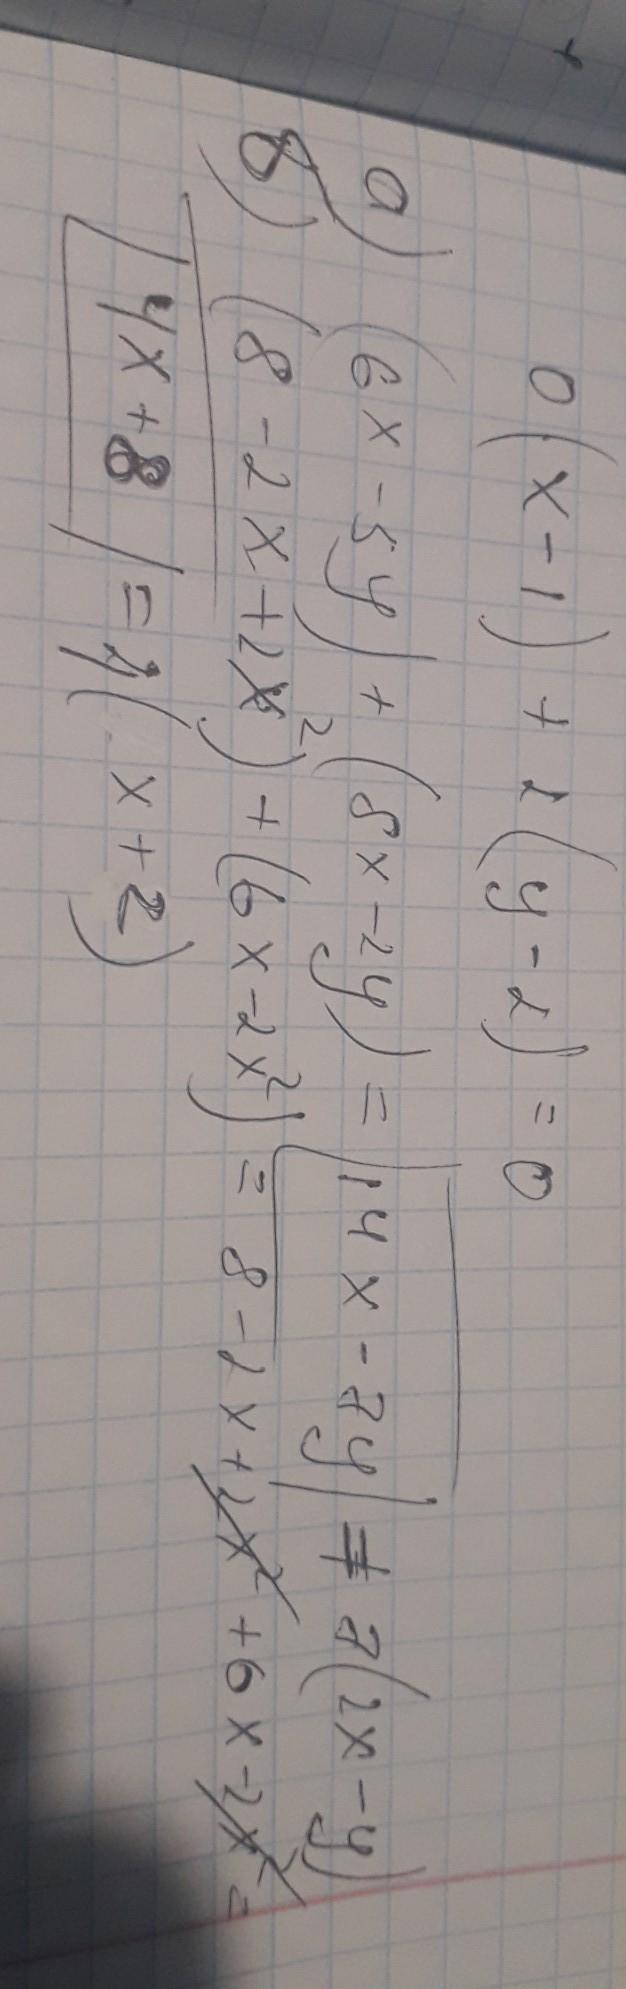 0(x-1)+2(y-2)=0
а) (6x-5y)+(8x-2y)=14x-7y=7(2x-y)
б) (8-2x+2x²)+(6x-2x²)=8-2x+2x²+6x-2x²=
4x+8=4(x+2)